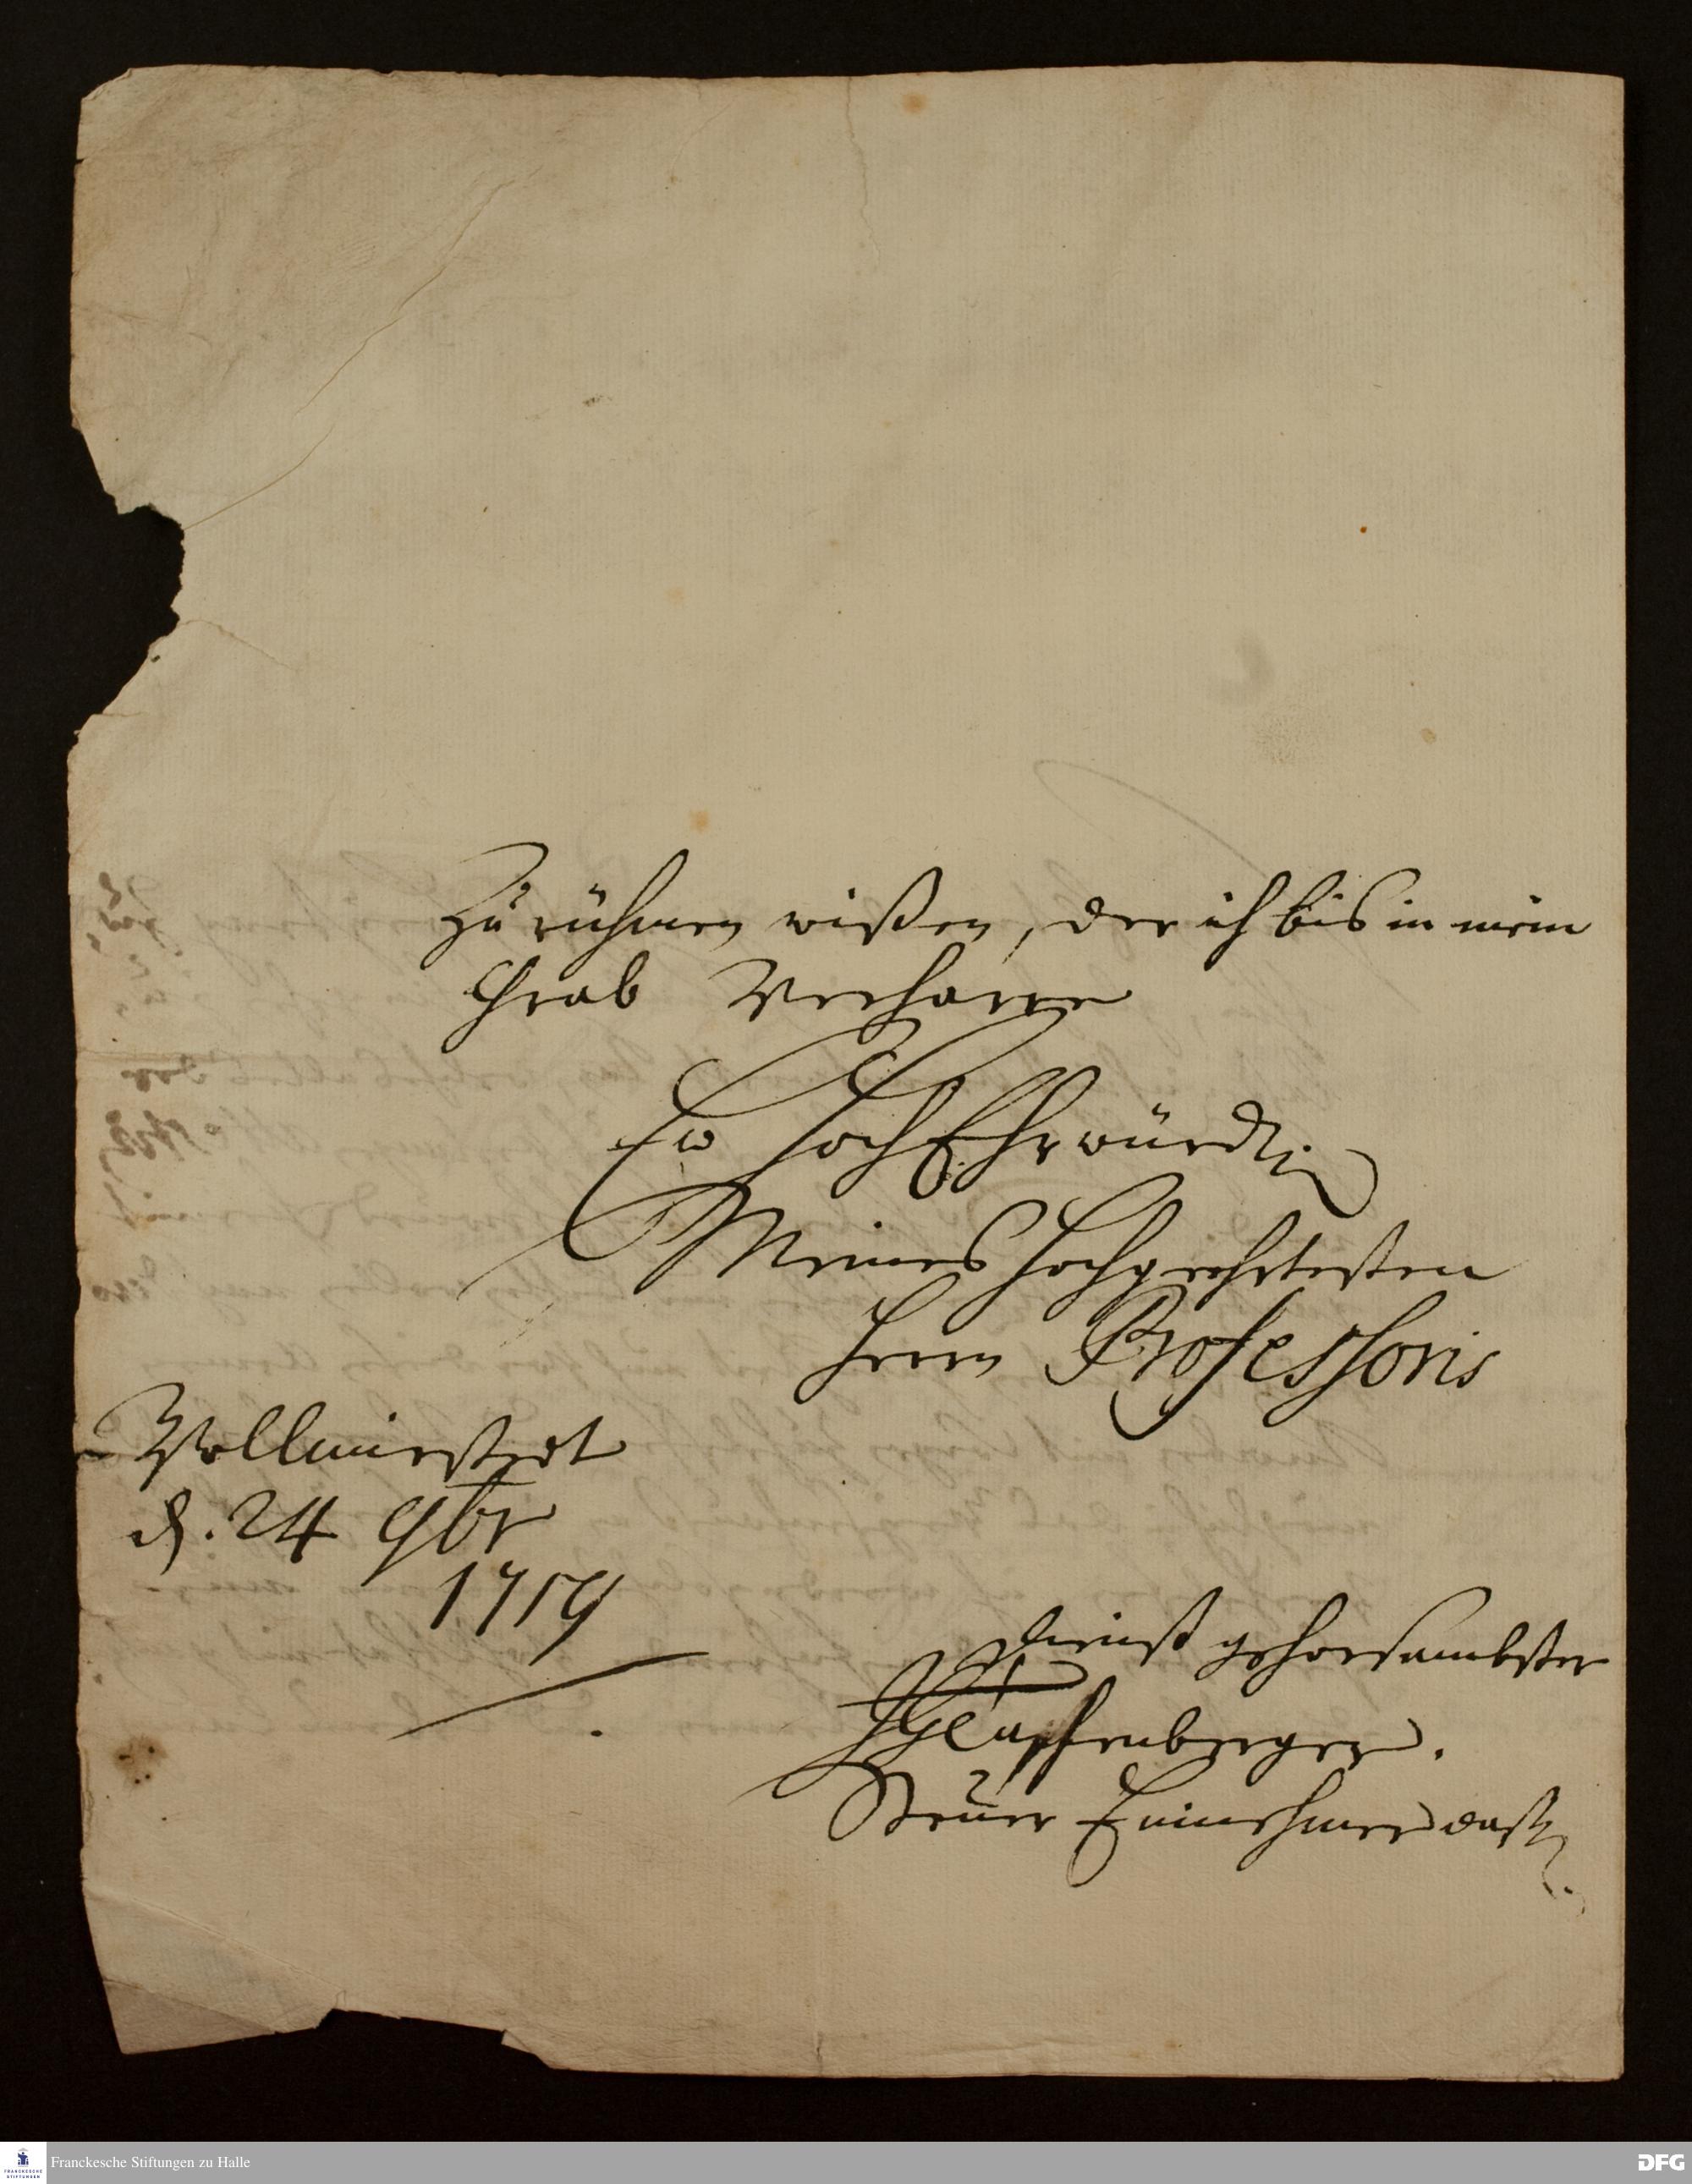 zu rühmen wißen, der ich bis in mein
Grab Verharre
Ew HochEhrwürdl.
Meines Hochgeehrtesten
Herrn Professoris
Vollmirstedt
d. 24 9br
1719
dienst gehorsambster
Steuer Einnehmer das.
Franckesche Stiftungen zu Halle
FRANCKESCHE
STIFTUNGEN
DFG